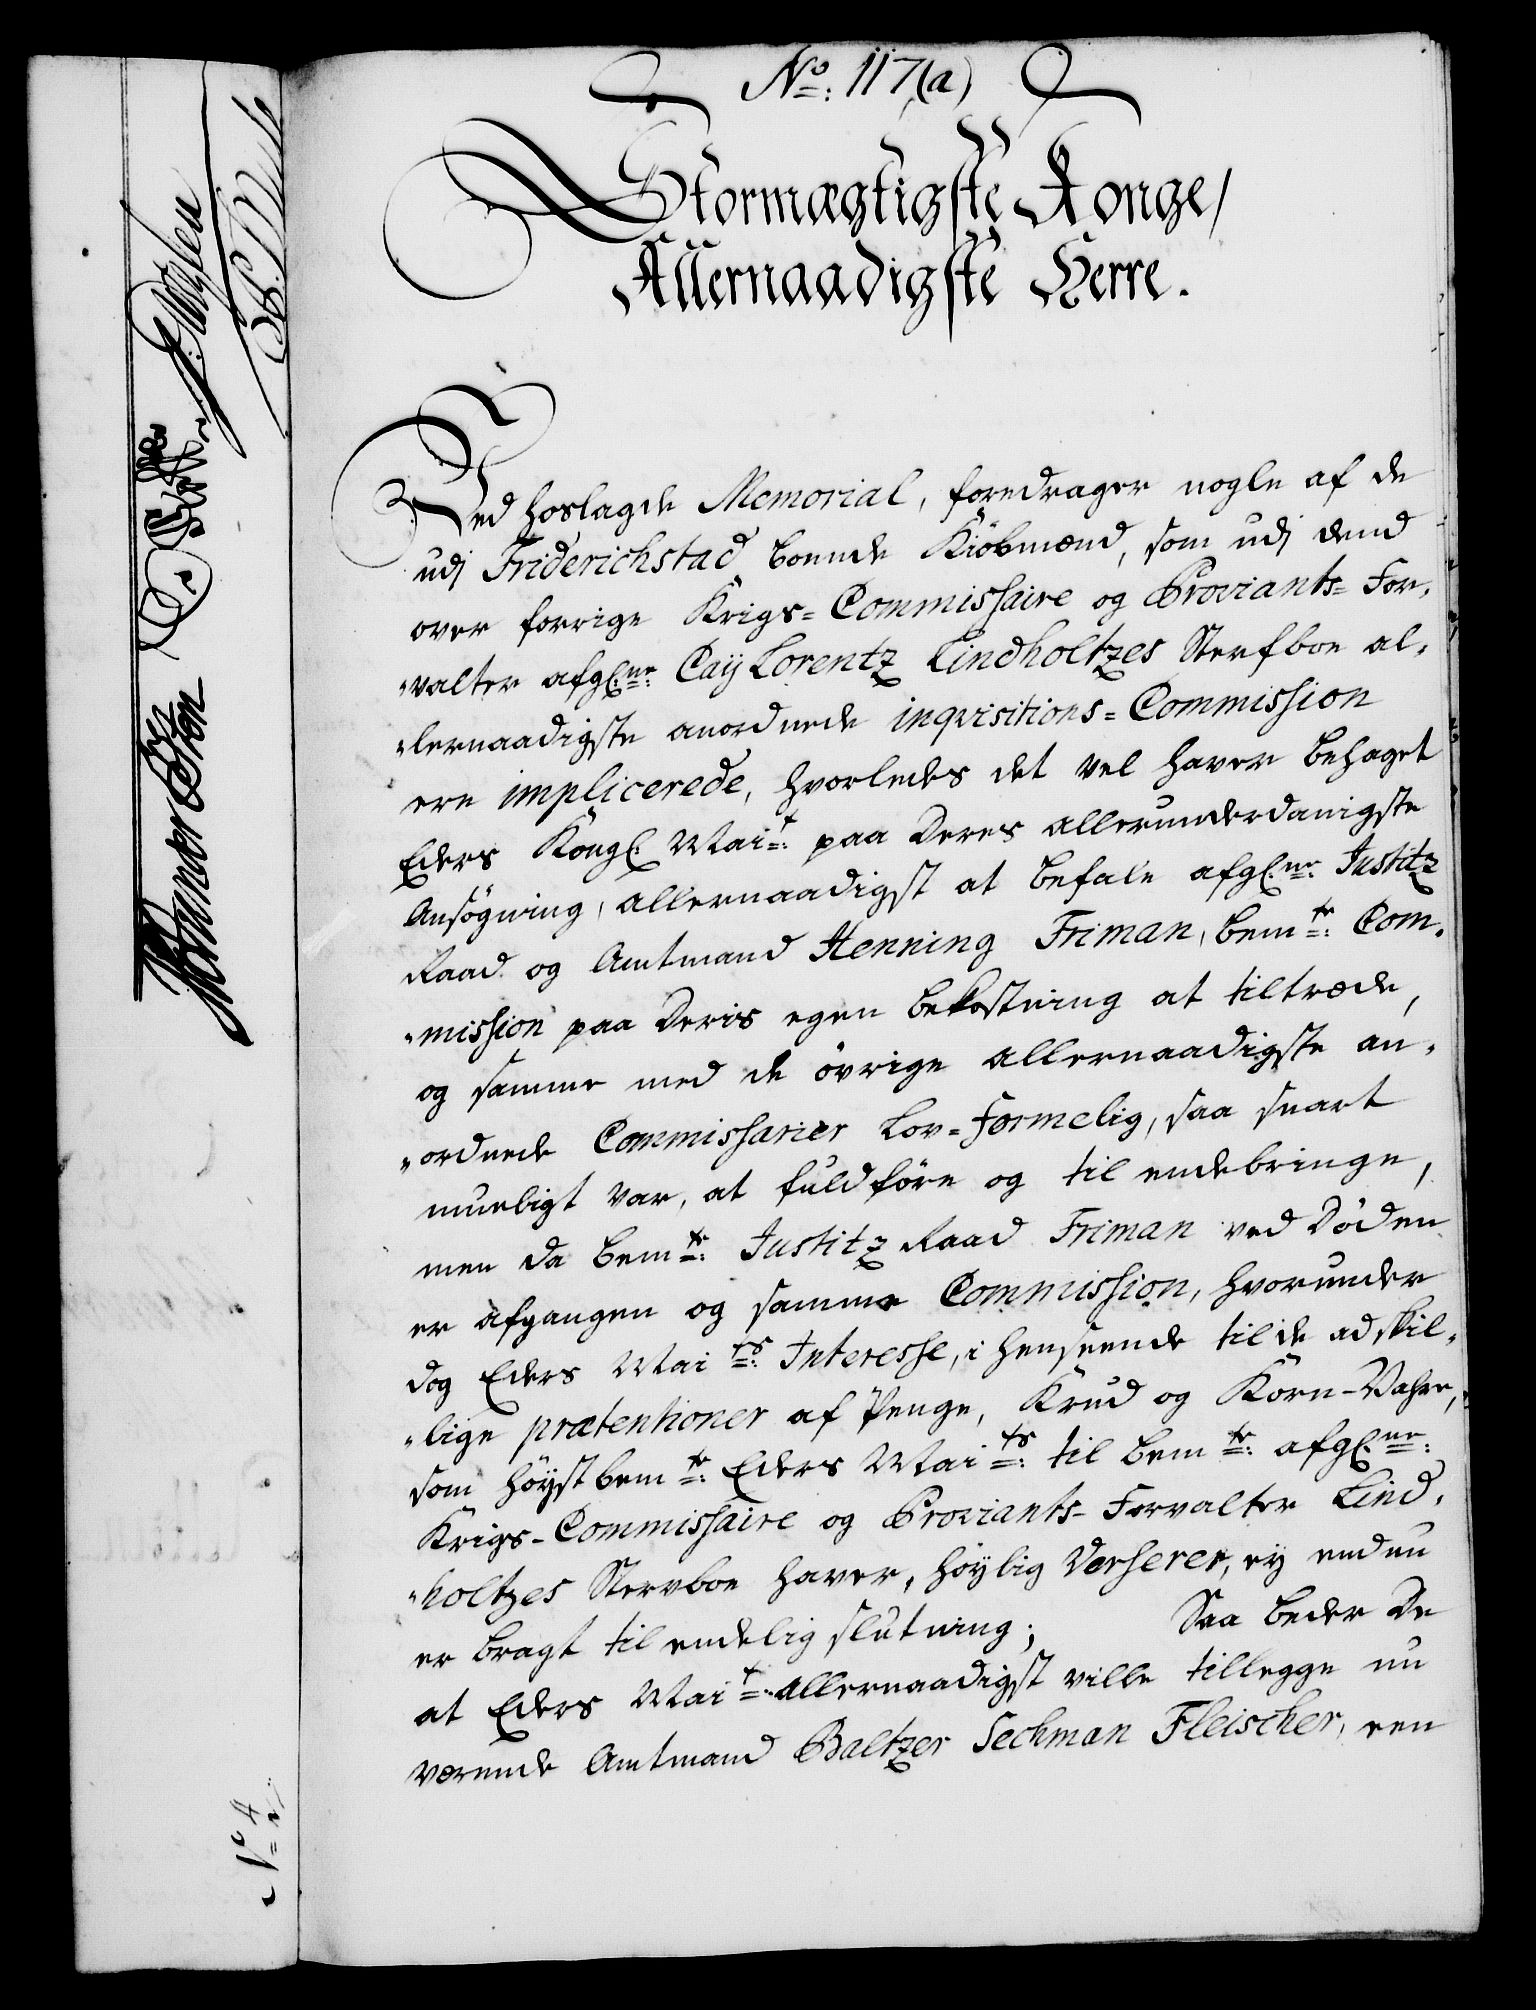 No: 117(a)
Stormægtigste Konge/
Allernaadigste Herre.
Ved hoslagde Memorial, foredrager nogle af de
udj Friderichstad boende Kiöbmænd, som udj dend
over forrige Krigs=Commissaire og Proviants=For,
"valter afgl:ne: Caÿ Lorentz Lindholtzes Sterfboe al,
"lernaadigste anordnede inqvisitions=Commission
ere implicerede, hvorledes det vel haver behaget
Eders Kongl: Mai:t paa Deres allerunderdanigste
Ansögning, allernaadigst at befale afgl:ne: Justitz
Raad og Amtmand Henning Friman, bem:te: Com,
"mission paa Deris egen bekostning at tiltræde,
og samme med de övrige allernaadigste an,
"ordnede Commissarier Lov=formelig, saa snart
mueligt var, at fuldföre og til endebringe,
men da bem:te: Justitz Raad Friman ved Döden
er afgangen og samme Commission, hvorunder
dog Eders Mai:ts: Interesse, i henseende til de adskil,
"lige prætentioner af Penge, Krud og Korn-Vahre,
som höÿstbem:te: Eders Mai:ts: til bem:te: afgl:ne:
Krigs-Commissaire og Proviants-Forvalter Lind,
"holtzes Stervboe haver, höÿlig Verserer, eÿ endnu
er bragt til endelig slutning; Saa beder De
at Eders Mai:t: allernaadigst ville tillegge nu
værende Amtmand Baltzer Sechman Fleischer, een
No 4